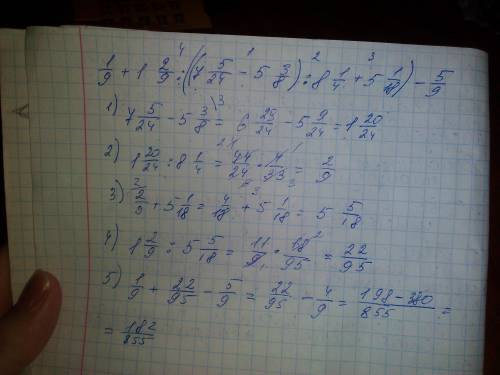 4 1 2 3
1/9 + 1 2/9 : ((7 5/24 - 5 3/8) : 8 1/4 + 5 1/18) - 5/9
1) 7 5/24 - 5 3/8 = 6 29/24 - 5 9/24 = 1 20/24
2) 1 20/24 : 8 1/4 = 44/24 · 4/33 = 2/9
3) 2/9 + 5 1/18 = 4/18 + 5 1/18 = 5 5/18
4) 1 2/9 : 5 5/18 = 11/9 · 18/95 = 22/95
5) 1/9 + 22/95 - 5/9 = 22/95 - 4/9 = 198-380/855 =
= 182/855